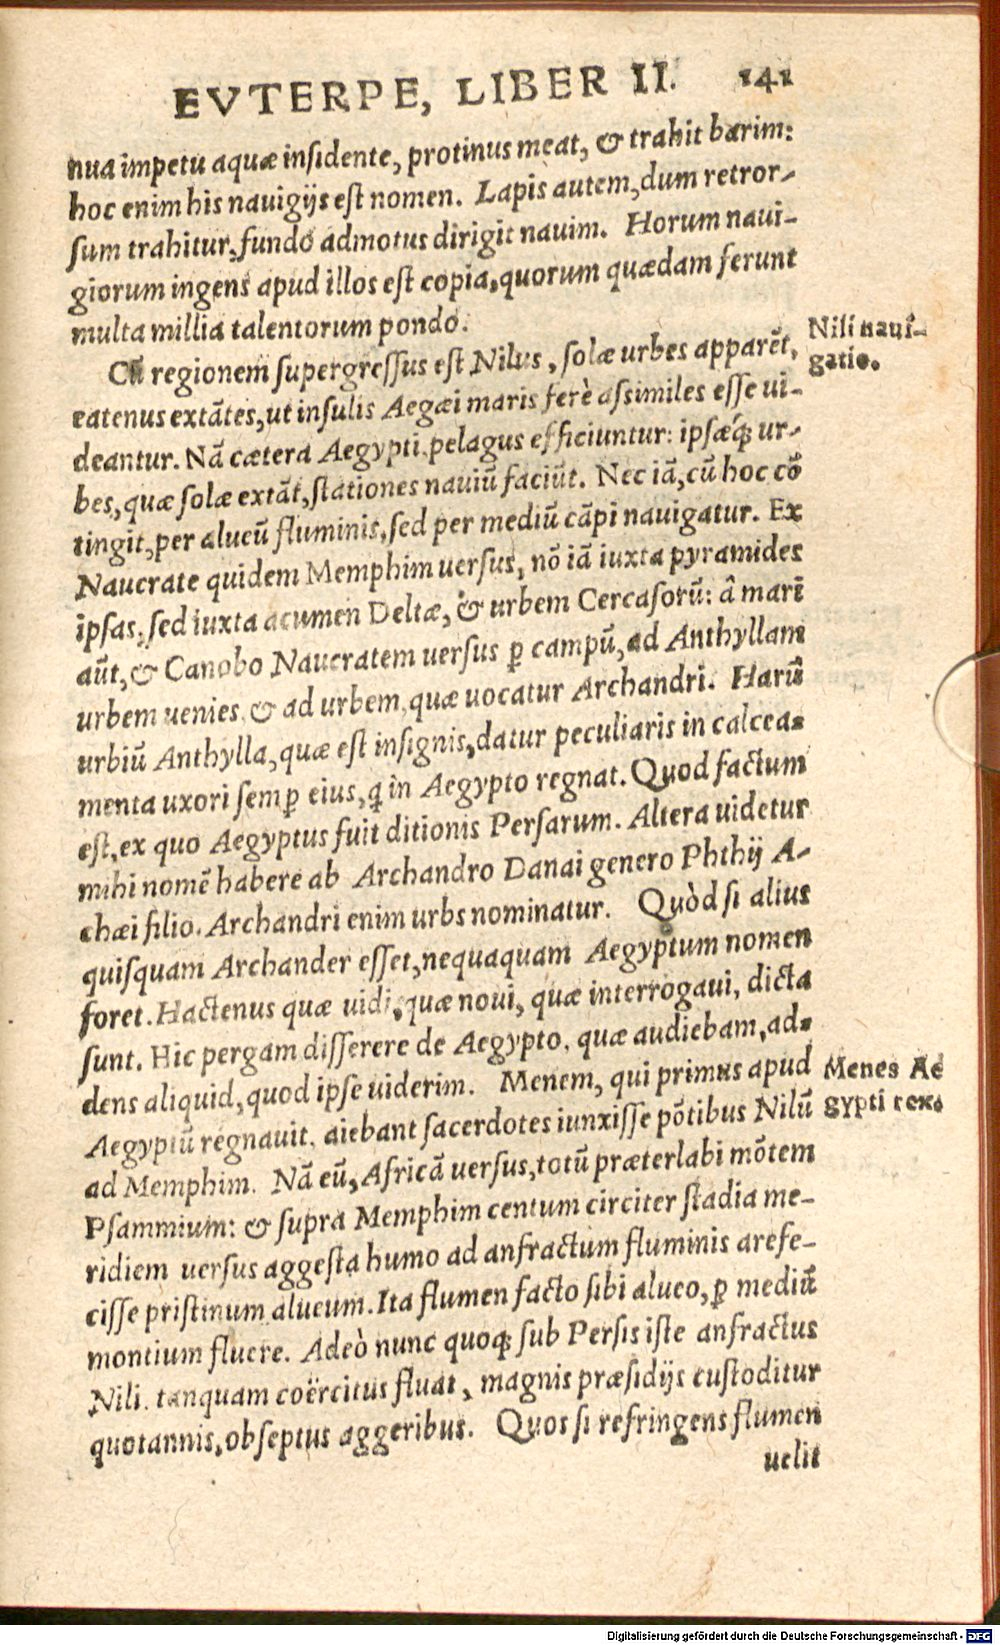 EVTERPE, LIBER II. 141
nua impetu aquæ insidente, protinus meat, & trahit barim:
hoc enim his nauigijs est nomen. Lapis autem, dum retror-
sum trahitur, fundo admotus dirigit nauim. Horum naui-
giorum ingens apud illos est copia, quorum quædam ferunt
multa millia talentorum pondo.
Cū regionem supergressus est Nilus, solæ urbes apparēt,
eatenus extātes, ut insulis Aegæi maris ferè assimiles esse ui-
deantur. Nā cætera Aegypti pelagus efficiuntur: ipsæq́; ur-
bes, quæ solæ extāt, stationes nauiū faciūt. Nec iā, cū hoc cō
tingit, per alueū fluminis, sed per mediū cāpi nauigatur. Ex
Naucrate quidem Memphim uersus, nō iā iuxta pyramides
ipsas, sed iuxta acumen Deltæ, & urbem Cercasorū: â mari
aūt, & Canobo Naucratem uersus ꝑ campū, ad Anthyllam
urbem uenies, & ad urbem, quæ uocatur Archandri. Harū
urbiū Anthylla, quæ est insignis, datur peculiaris in calcea-
menta uxori semꝑ eius, q in Aegypto regnat. Quod factum
est, ex quo Aegyptus fuit ditionis Persarum. Altera uidetur
mihi nomē habere ab Archandro Danai genero Phthij A-
chæi filio. Archandri enim urbs nominatur. Quòd si alius
quisquam Archander esset, nequaquam Aegyptum nomen
foret. Hactenus quæ uidi, quæ noui, quæ interrogaui, dicta
sunt. Hic pergam disserere de Aegypto, quæ audiebam, ad-
dens aliquid, quod ipse uiderim. Menem, qui primus apud
Aegyptiū regnauit, aiebant sacerdotes iunxisse pōtibus Nilū
ad Memphim. Nā eū, Africā uersus, totū præterlabi mōtem
Psammium: & supra Memphim centum circiter stadia me-
ridiem uersus aggesta humo ad anfractum fluminis arefe-
cisse pristinum alueum. Ita flumen facto sibi alueo, ꝑ mediū
montium fluere. Adeò nunc quoq; sub Persis iste anfractus
Nili, tanquam coërcitus fluat, magnis præsidijs custoditur
quotannis, obseptus aggeribus. Quos si refringens flumen
uelit
Nili naui-
gatio.
Menes Ae
gypti rex.
Digitalisierung gefördert durch die Deutsche Forschungsgemeinschaft - DFG